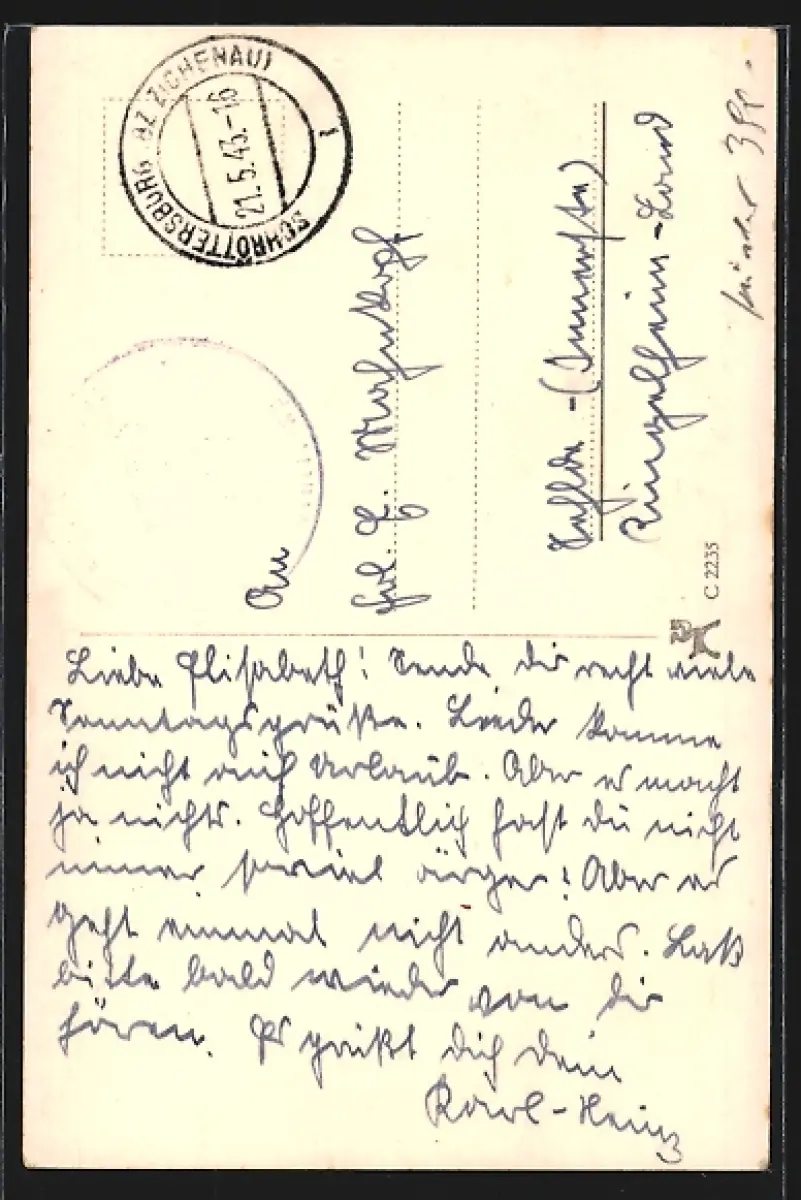 SCHRÖTTERSBURG (BZ ZICHENAU)
1
21.5.43.-16
An
Frl. E.
Sehlde - (Innerste)
Ringelheim - Land
C 2235
Liebe Elisabeth! Sende dir recht viele
Sonntagsgrüße. Leider komme
ich nicht auf Urlaub. Aber es macht
ja nichts. Hoffentlich hast du nicht
immer soviel ärger! Aber es
geht einmal nicht anders. Laß
bitte bald wieder von dir
hören. Es grüßt dich dein
Karl-Heinz